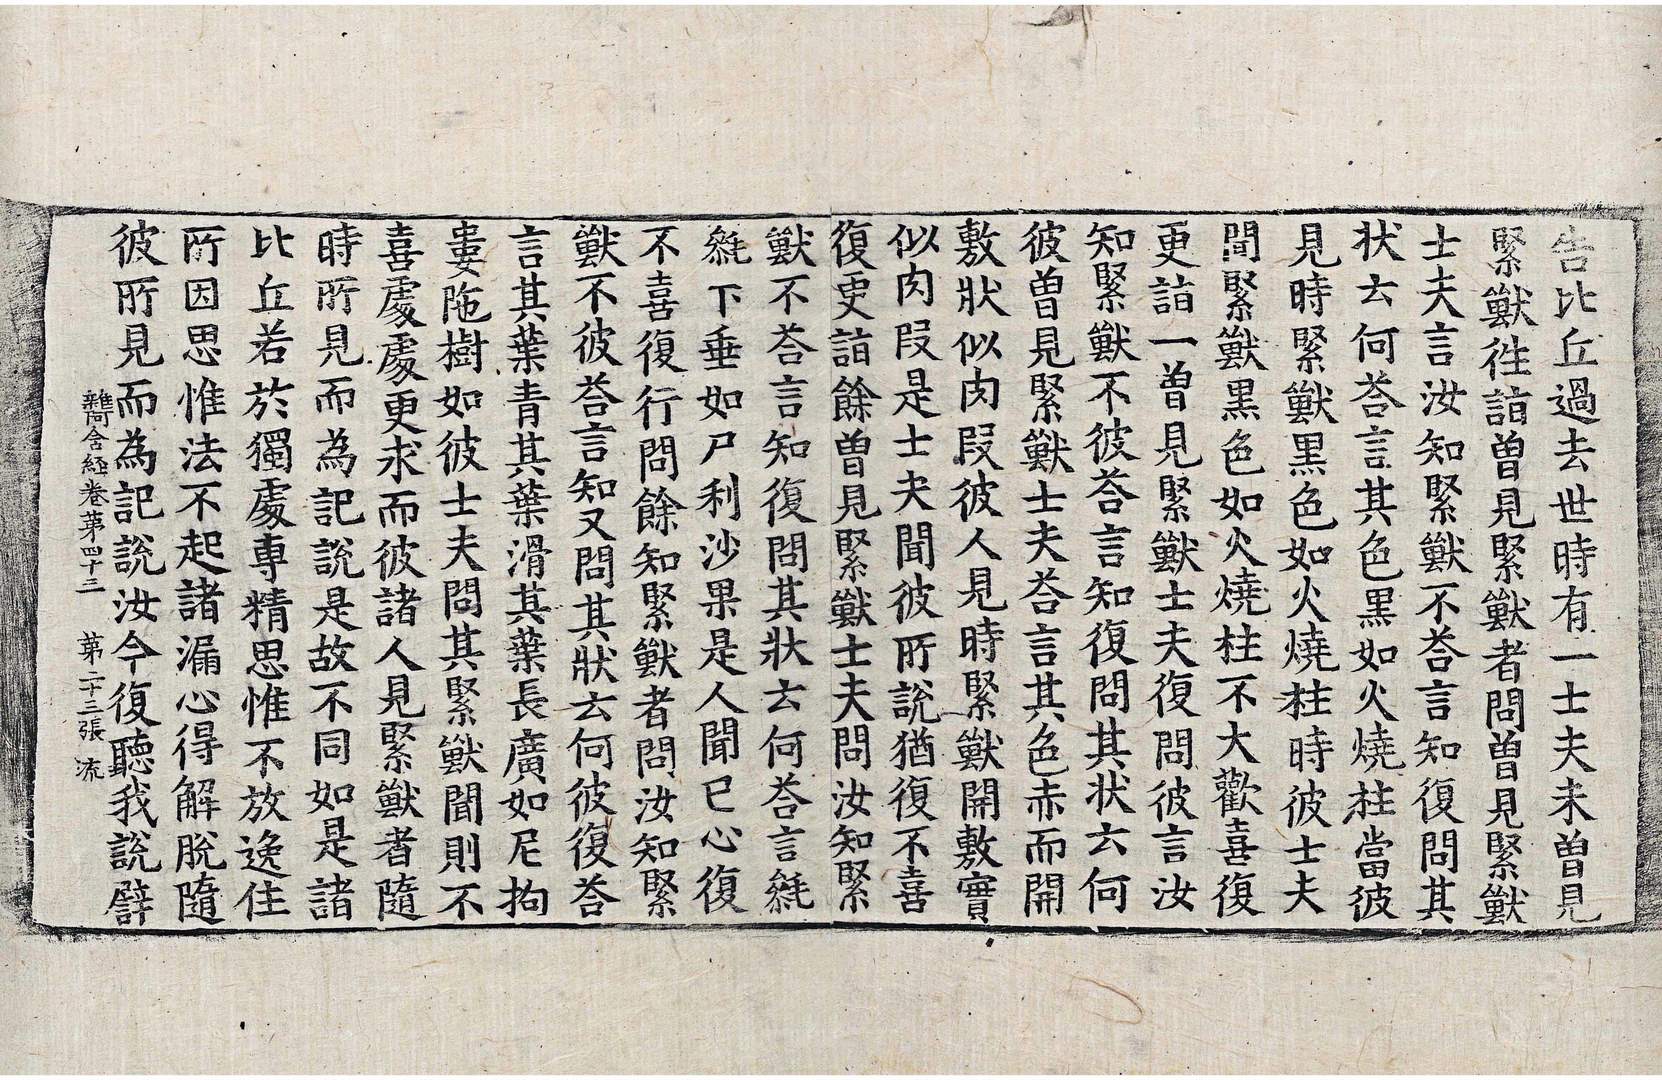 告比丘過去世時有一士夫未曾見
緊獸徃詣曾見緊獸者問曾見緊獸
士夫言汝知緊獸不荅言知復問其
狀云何荅言其色黒如火燒柱當彼
見時緊獸黒色如火燒柱時彼士夫
聞緊獸黒色如火燒柱不大歡喜復
更詣一曾見緊獸士夫復問彼言汝
知緊獸不彼荅言知復問其状云何
彼曾見緊獸士夫荅言其色赤而開
敷狀似肉段彼人見時緊獸開敷實
似肉段是士夫聞彼所說猶復不喜
復更詣餘曾見緊獸士夫問汝知緊
獸不荅言知復問其狀云何荅言毿
毿下垂如尸利沙果是人聞已心復
不喜復行問餘知緊獸者問汝知緊
獸不彼荅言知又問其狀云何彼復荅
言其葉青其葉滑其葉長廣如尼拘
婁陁樹如彼士夫問其緊獸聞則不
喜處處更求而彼諸人見緊獸者隨
時所見而為記說是故不同如是諸
比丘若於獨處專精思惟不放逸住
所因思惟法不起諸漏心得解脫隨
彼所見而為記說汝今復聽我說譬
雜阿含経卷第四十三 第二十三張 流